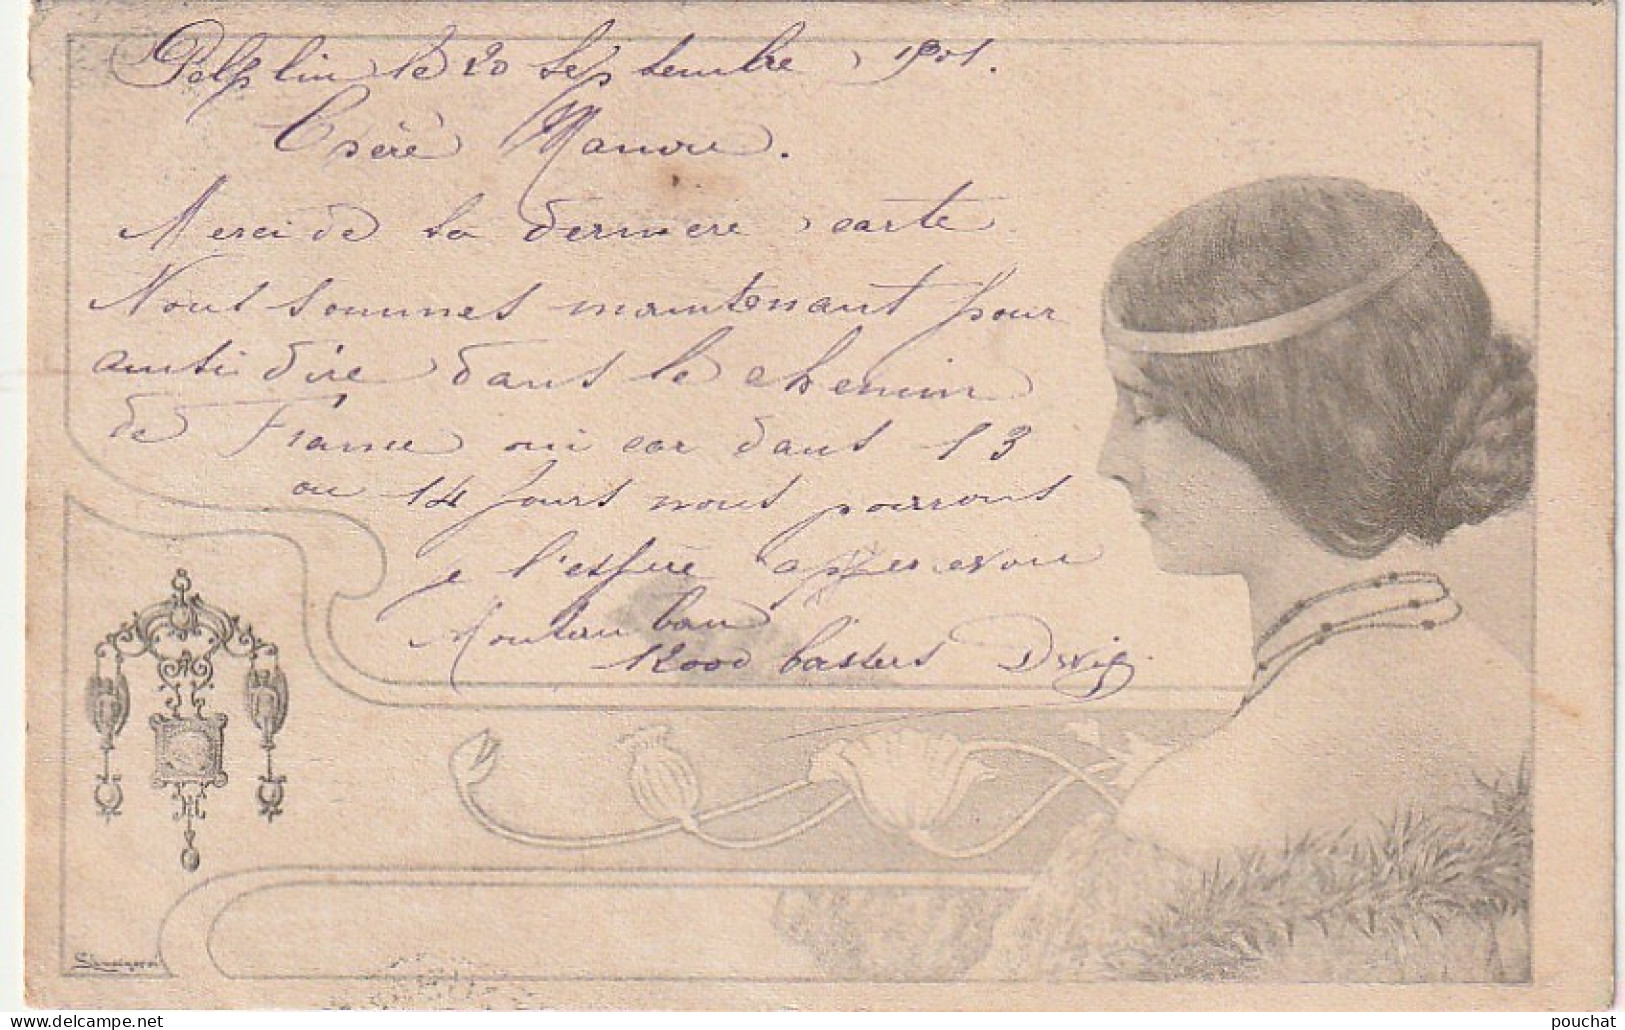 Pelplin le 20 Septembre 1901.
Chère Manou.
Merci de ta derniere carte
Nous sommes maintenant pour
ainsi dire dans le chemin
de France oui car dans 13
ou 14 jours nous pourrons
je l'espère apercevoir
Montauban
12000 baisers
pouchat